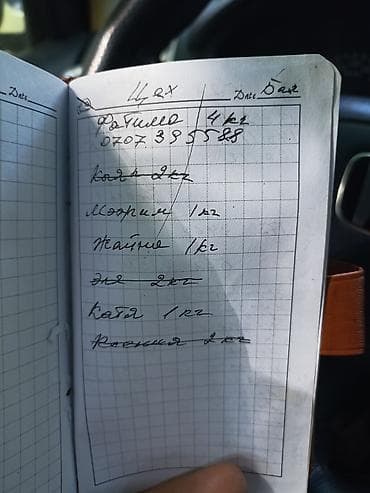 Цех Для Бая
Фатима 4 кг
0707 395588
2 кг
Мээрим 1 кг
Жайна 1 кг
Эля 2 кг
Катя 1 кг
Ксения 2 кг